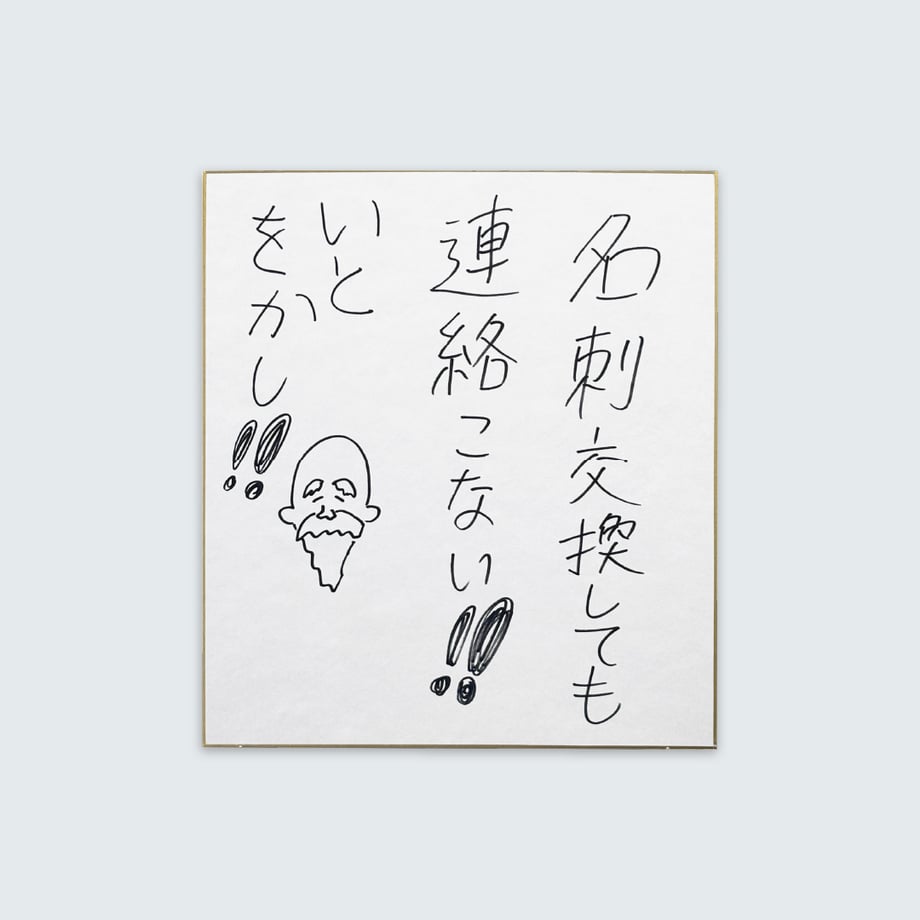 名刺交換しても
連絡こない!!
いと
をかし!!